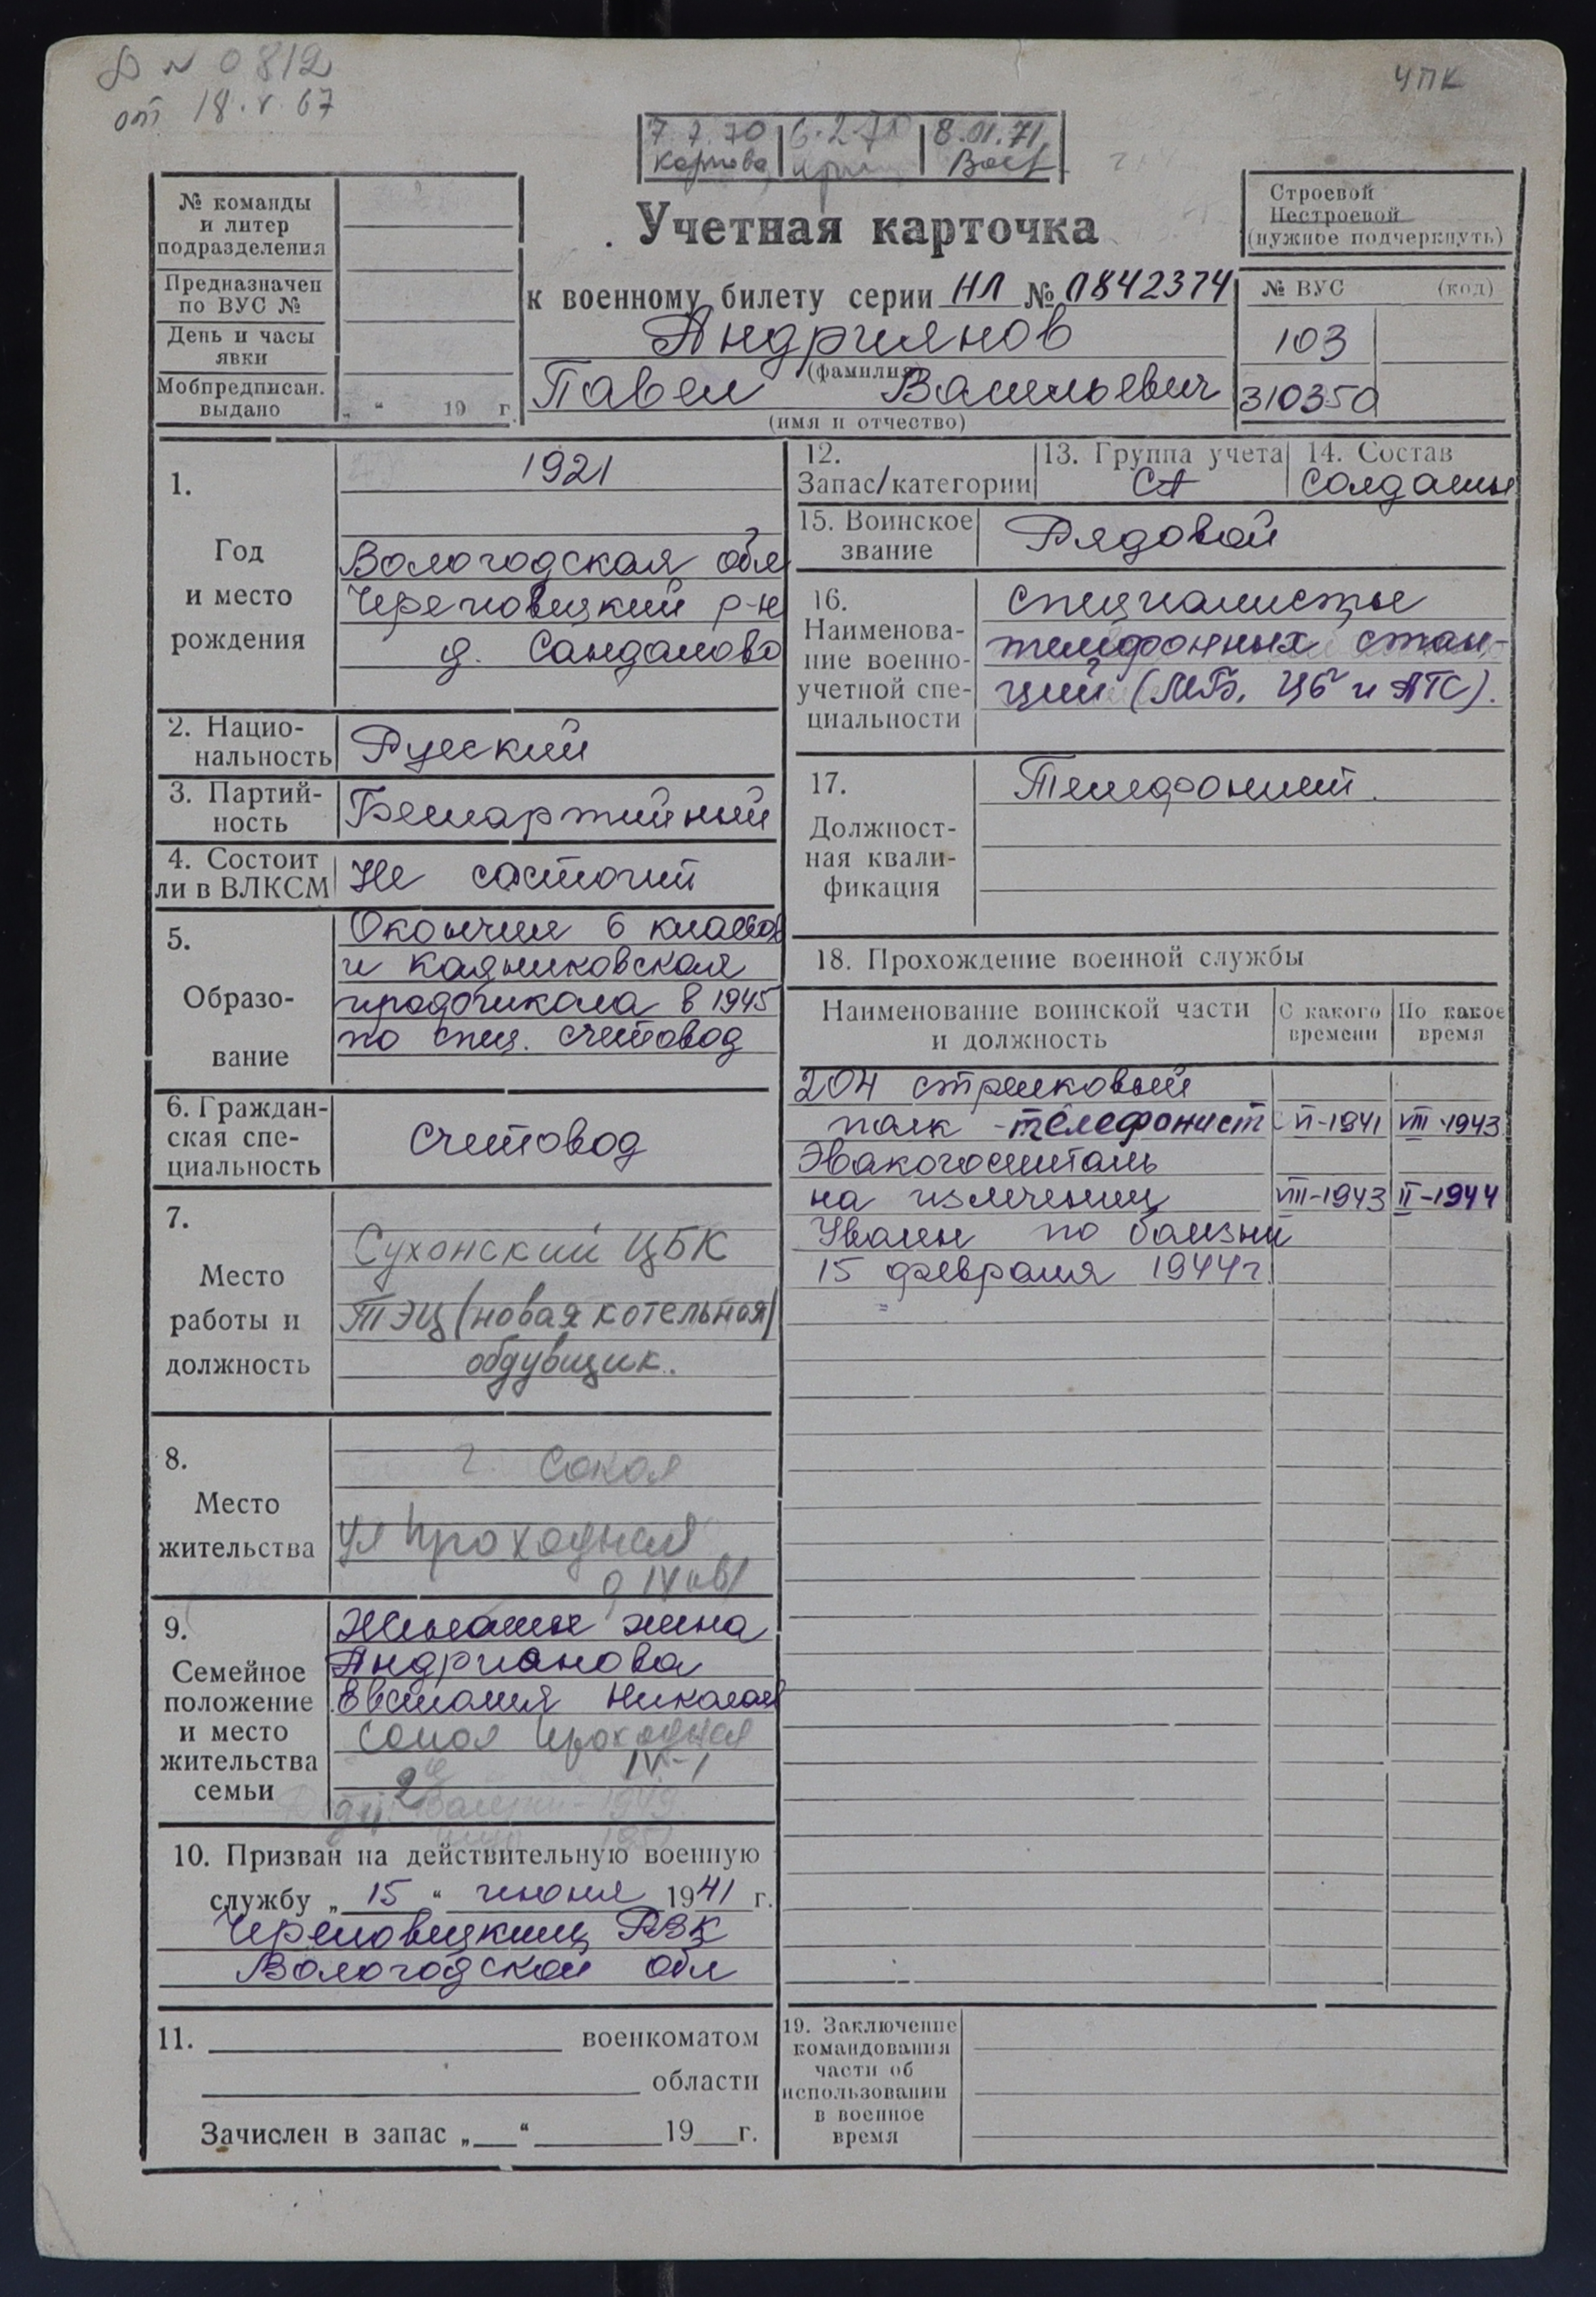 № 0812
от 18.V.67
ЧПК
7.7.70
6.2.71
8.01.71
Карпова
№ команды
и литер
подразделения
Предназначен
по ВУС №
День и часы
явки
Мобпредписан.
выдано
„ “ 19 г.
Учетная карточка
к военному билету серии НЛ № 0842374
Андриянов
(фамилия)
Павел Васильевич
(имя и отчество)
Строевой
Нестроевой
(нужное подчеркнуть)
№ ВУС (код)
103
310350
1.
Год
и место
рождения
1921
Вологодская обл
Череповецкий р-н
д. Сандалово
2. Нацио-
нальность
Русский
3. Партий-
ность
Беспартийный
4. Состоит
ли в ВЛКСМ
Не состоит
5.
Образо-
вание
Окончил 6 классов
и Кадниковская
в 1945
по спец. счетовод
6. Граждан-
ская спе-
циальность
Счетовод
7.
Место
работы и
должность
Сухонский ЦБК
ТЭЦ (новая котельная)
обдувщик.
8.
Место
жительства
г. Сокол
ул Проходная
9.
Семейное
положение
и место
жительства
семьи
Женат жена
Андрианова
Николаев
Сокол Проходная
IV-1
1949
10. Призван на действительную военную
службу „ 15 “ июня 1941 г.
Череповецким РВК
Вологодской обл
11. военкоматом
области
Зачислен в запас „ “ 19 г.
12.
Запас/категории
13. Группа учета
СА
14. Состав
Солдаты
15. Воинское
звание
Рядовой
16.
Наименова-
ние военно-
учетной спе-
циальности
Специалисты
телефонных стан-
ций (МБ, ЦБ и АТС).
17.
Должност-
ная квали-
фикация
Телефонист.
18. Прохождение военной службы
Наименование воинской части
и должность
С какого
времени
По какое
время
204 стрелковый
полк - телефонист VI-1941 VIII-1943
Эвакогоспиталь
на излечении VIII-1943 II-1944
Уволен по болезни
15 февраля 1944г
19. Заключение
командования
части об
использовании
в военное
время